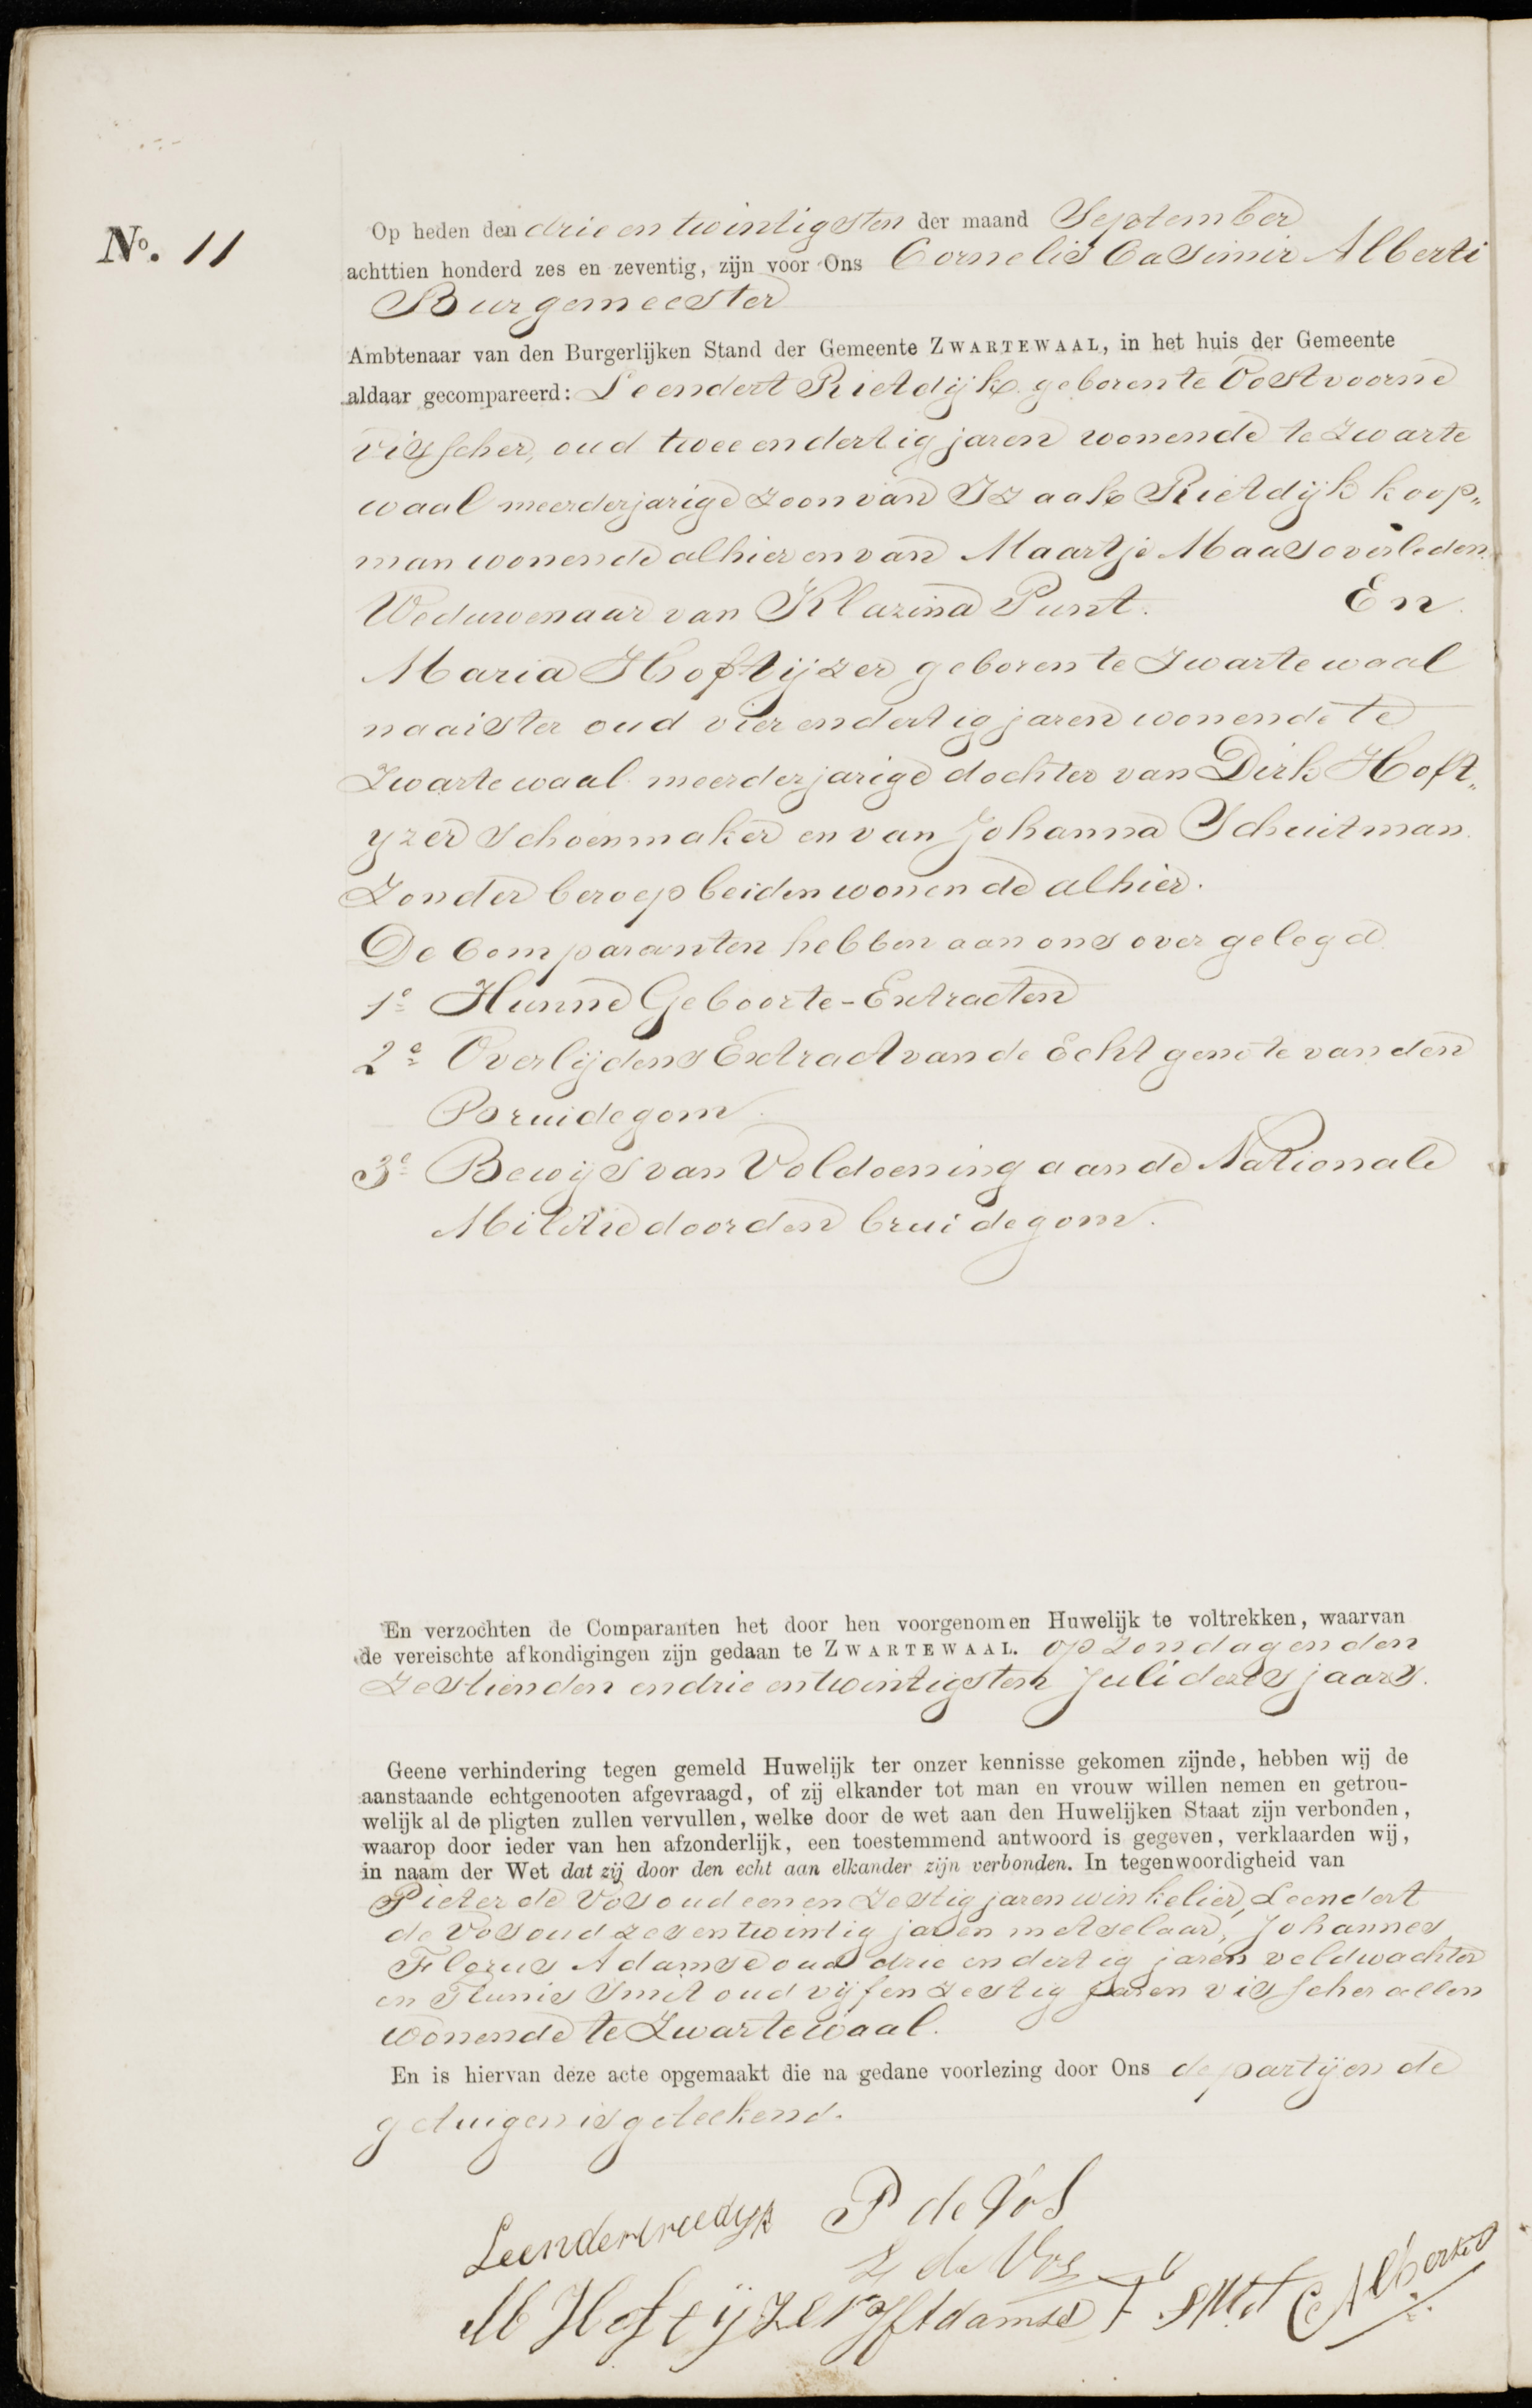 No. 11
Op heden den drie en twintigsten der maand September
achttien honderd zes en zeventig, zijn voor Ons Cornelis Casimir Alberti
Burgemeester
Ambtenaar van den Burgerlijken Stand der Gemeente ZWARTEWAAL, in het huis der Gemeente
aldaar gecompareerd: Leendert Rietdijk geboren te Oostvoorne
visscher, oud twee en dertig jaren wonende te Zwarte
waal meerderjarige zoon van Izaak Rietdijk koop„
man wonende alhier en van Maartje Maas overleden.
Weduwenaar van Klazina Punt. En
Maria Hoftijzer geboren te Zwartewaal
naaister oud vier en dertig jaren wonende te
Zwartewaal meerderjarige dochter van Dirk Hoft„
yzer schoenmaker en van Johanna Schuitman
Zonder beroep beiden wonende alhier.
De Comparanten hebben aan ons over gelegd
1e Hunne Geboorte-Extracten
2e Overlijdens Extract van de Echtgenote van den
Bruidegom
3e Bewijs van Voldoening aan de Nationale
Militie door den bruidegom.
En verzochten de Comparanten het door hen voorgenomen Huwelijk te voltrekken, waarvan
de vereischte afkondigingen zijn gedaan te ZWARTEWAAL. op Zondagen den
Zestienden en drie en twintigsten Juli dezes jaars.
Geene verhindering tegen gemeld Huwelijk ter onzer kennisse gekomen zijnde, hebben wij de
aanstaande echtgenooten afgevraagd, of zij elkander tot man en vrouw willen nemen en getrou-
welijk al de pligten zullen vervullen, welke door de wet aan den Huwelijken Staat zijn verbonden,
waarop door ieder van hen afzonderlijk, een toestemmend antwoord is gegeven, verklaarden wij,
in naam der Wet dat zij door den echt aan elkander zijn verbonden. In tegenwoordigheid van
Pieter de Vos oud een en Zestig jaren winkelier, Leendert
de Vos oud zes en twintig jaren metselaar, Johannes
Florus Adamse oud drie en dertig jaren veldwachter
en Teunis Smit oud vijf en zestig jaren visscher allen
wonende te Zwartewaal.
En is hiervan deze acte opgemaakt die na gedane voorlezing door Ons de partijen de
getuigen is geteekend.
Leendert rietdijk P de Vos
L de Vos
M Hoftijzer JFAdamse T Smit CCAlberti